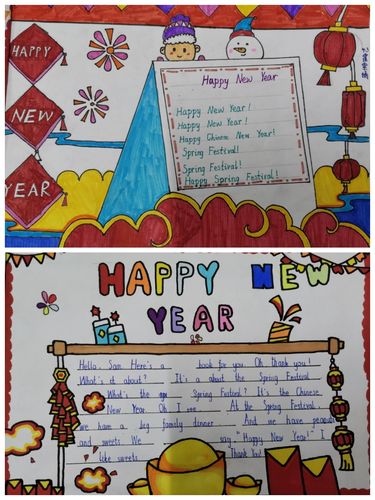 HAPPY
NEW
YEAR
Happy New Year
Happy New Year!
Happy New Year!
Happy Chinese New Year!
Spring Festival!
Spring Festival!
Happy Spring Festival!
HAPPY NEW
YEAR
Hello, Sam. Here's a book for you. Oh thank you!
What's it about? It's a about the Spring Festival.
What's the Spring Festival? It's the Chinese
New Year. Oh I see. At the Spring Festival
we ham a big family dinner. And we have
and sweets. We say "Happy New Year!" I
like sweets. Thank You!